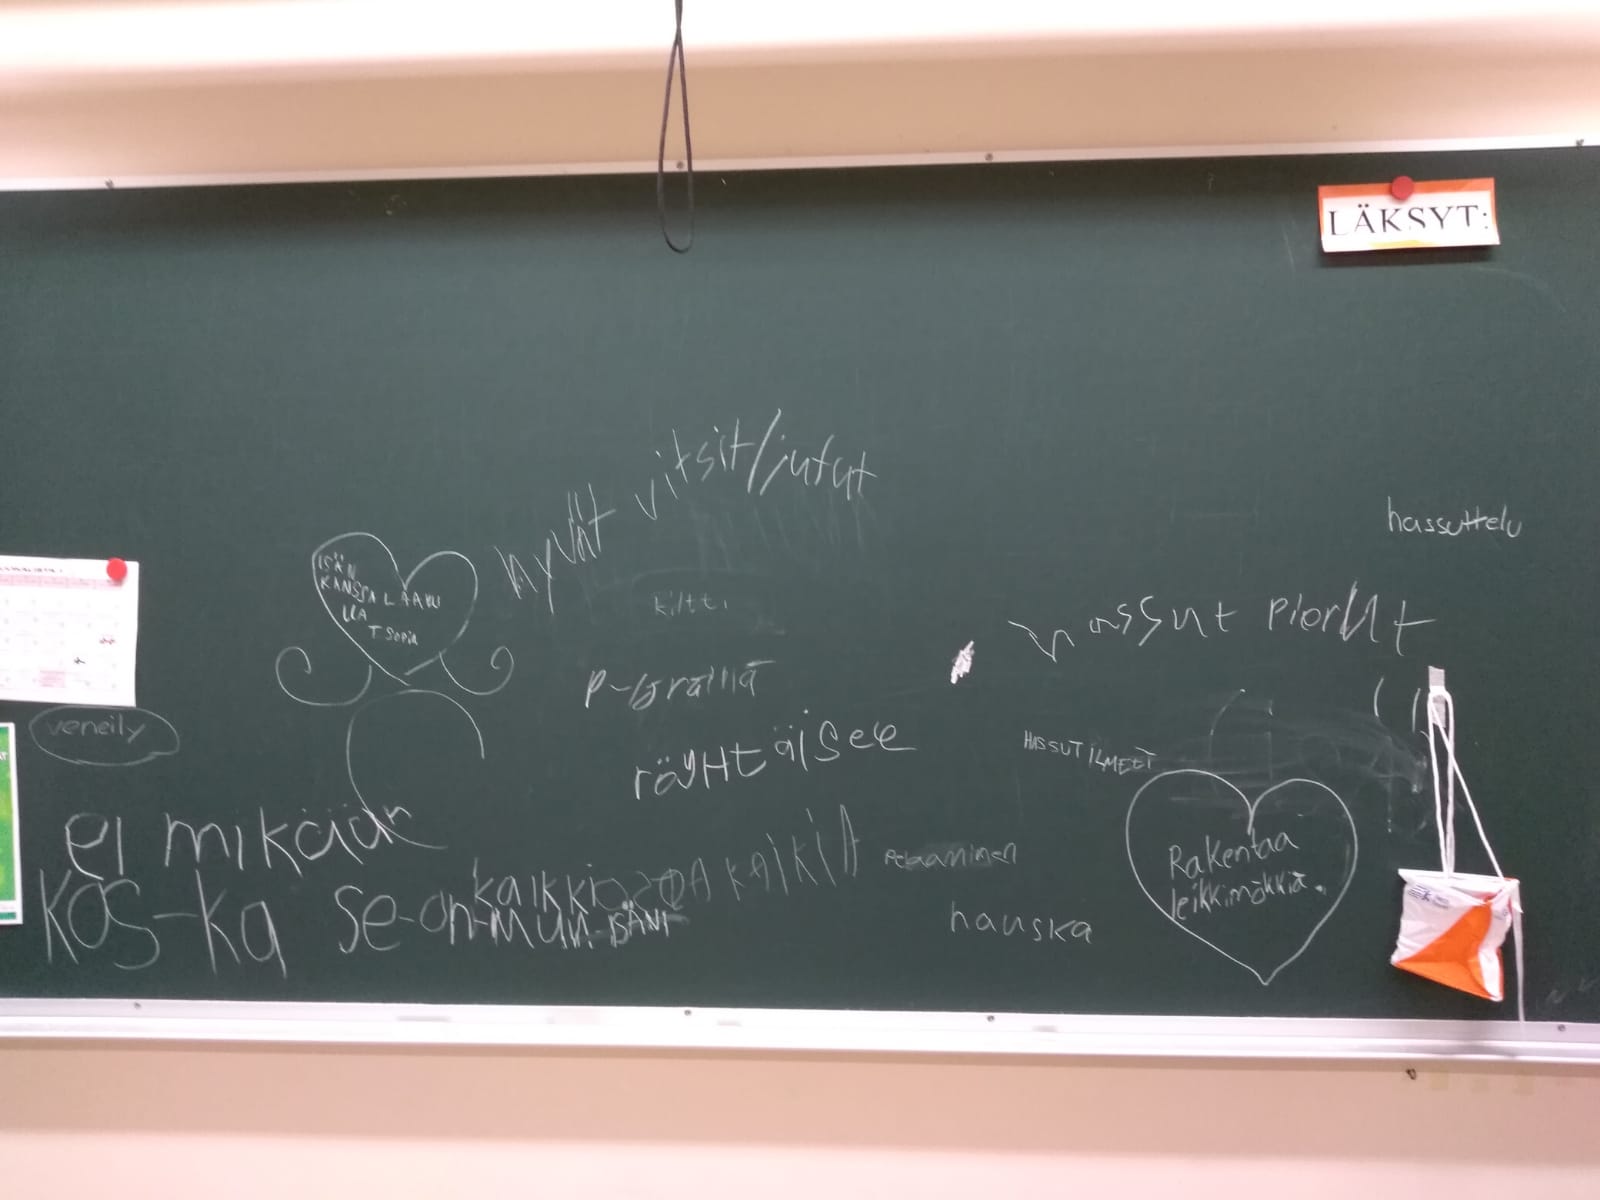 LÄKSYT:
hyvät vitsit/jutut
hassuttelu
ISÄN
KANSSA LAAVU
LLA
T Sofia
kiltti
hassut pierut
P-Graillä
veneily
röyHtäisee
HASSUT ILMEET
ei mikään
kos-ka se-on-mun-ISÄNI
kaikki
KAIKIA
Pelaaminen
Rakentaa
leikkimökkiä.
hauska